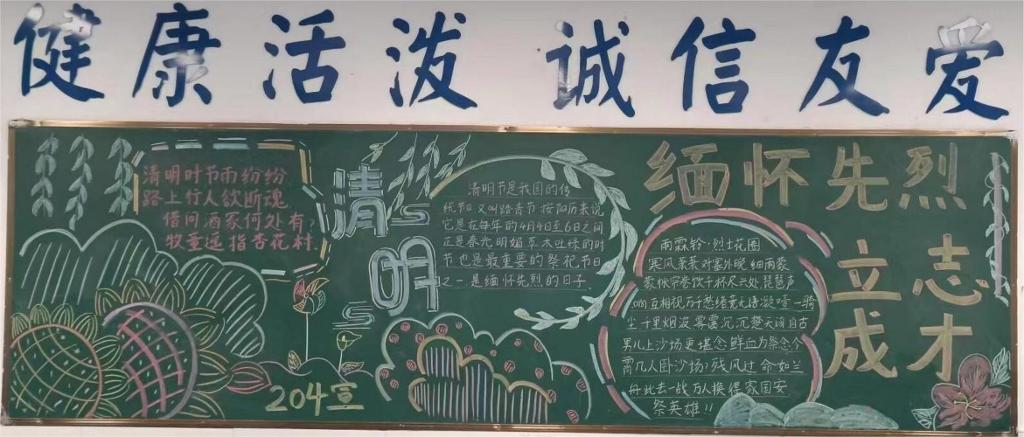 健康活泼 诚信友爱
清明时节雨纷纷
路上行人欲断魂
借问酒家何处有?
牧童遥指杏花村.
清明
清明节是我国的传
统节日又叫踏青节 按阳历来说
它是在每年的4月4日至6日之间
正是春光明媚草木吐绿的时
节也是最重要的祭祀节日
之一是缅怀先烈的日子.
缅怀先烈
立志
成才
雨霖铃·烈士花圈
寒风萧萧对塞外晚 细雨蒙
蒙 帐 饮千杯尽兴处琵琶声
响互相视万千愁绪竟无语凝噎一骑
尘千里烟波 雾霭沉沉楚天阔自古
男儿上沙场更堪念 鲜血为祭念今
霄几人卧沙场?残风过 命如兰
舟此去一战万人换得家国安
祭英雄!!
204宣